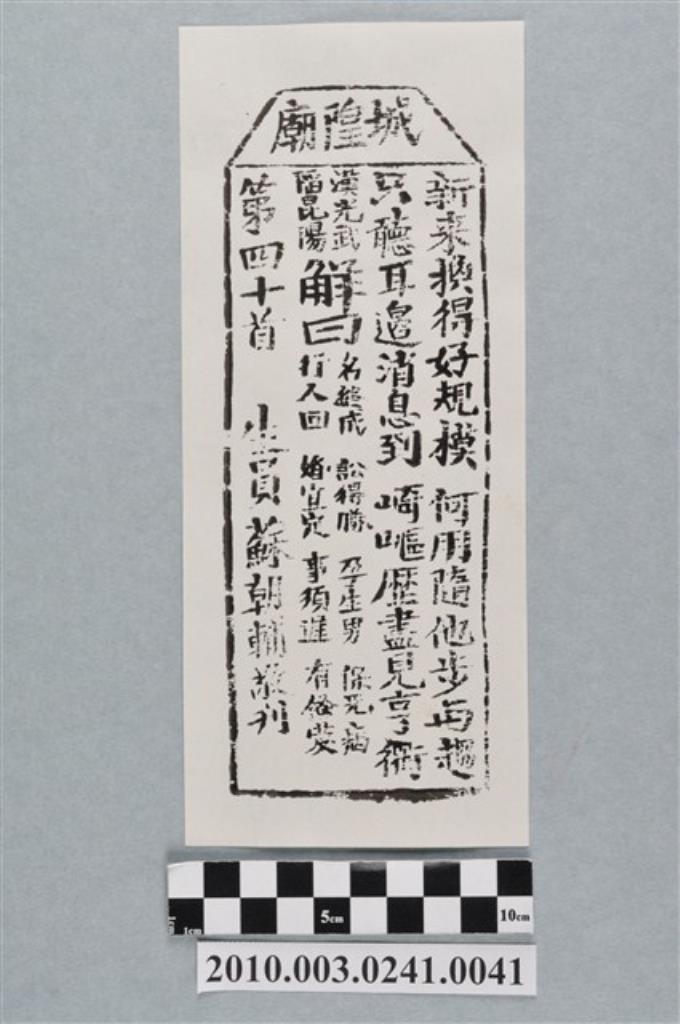 城隍廟
新來換得好規模 何用隨他步與趨
只聽耳邊消息到 崎嶇歷盡見亨衢
漢光武
陷昆陽
解曰
名總成 訟得勝 孕生男 保免病
行人回 婚宜定 事須進 有餘慶
第四十首 生員蘇朝輔敬刊
5cm
10cm
1cm
1cm
2010.003.0241.0041